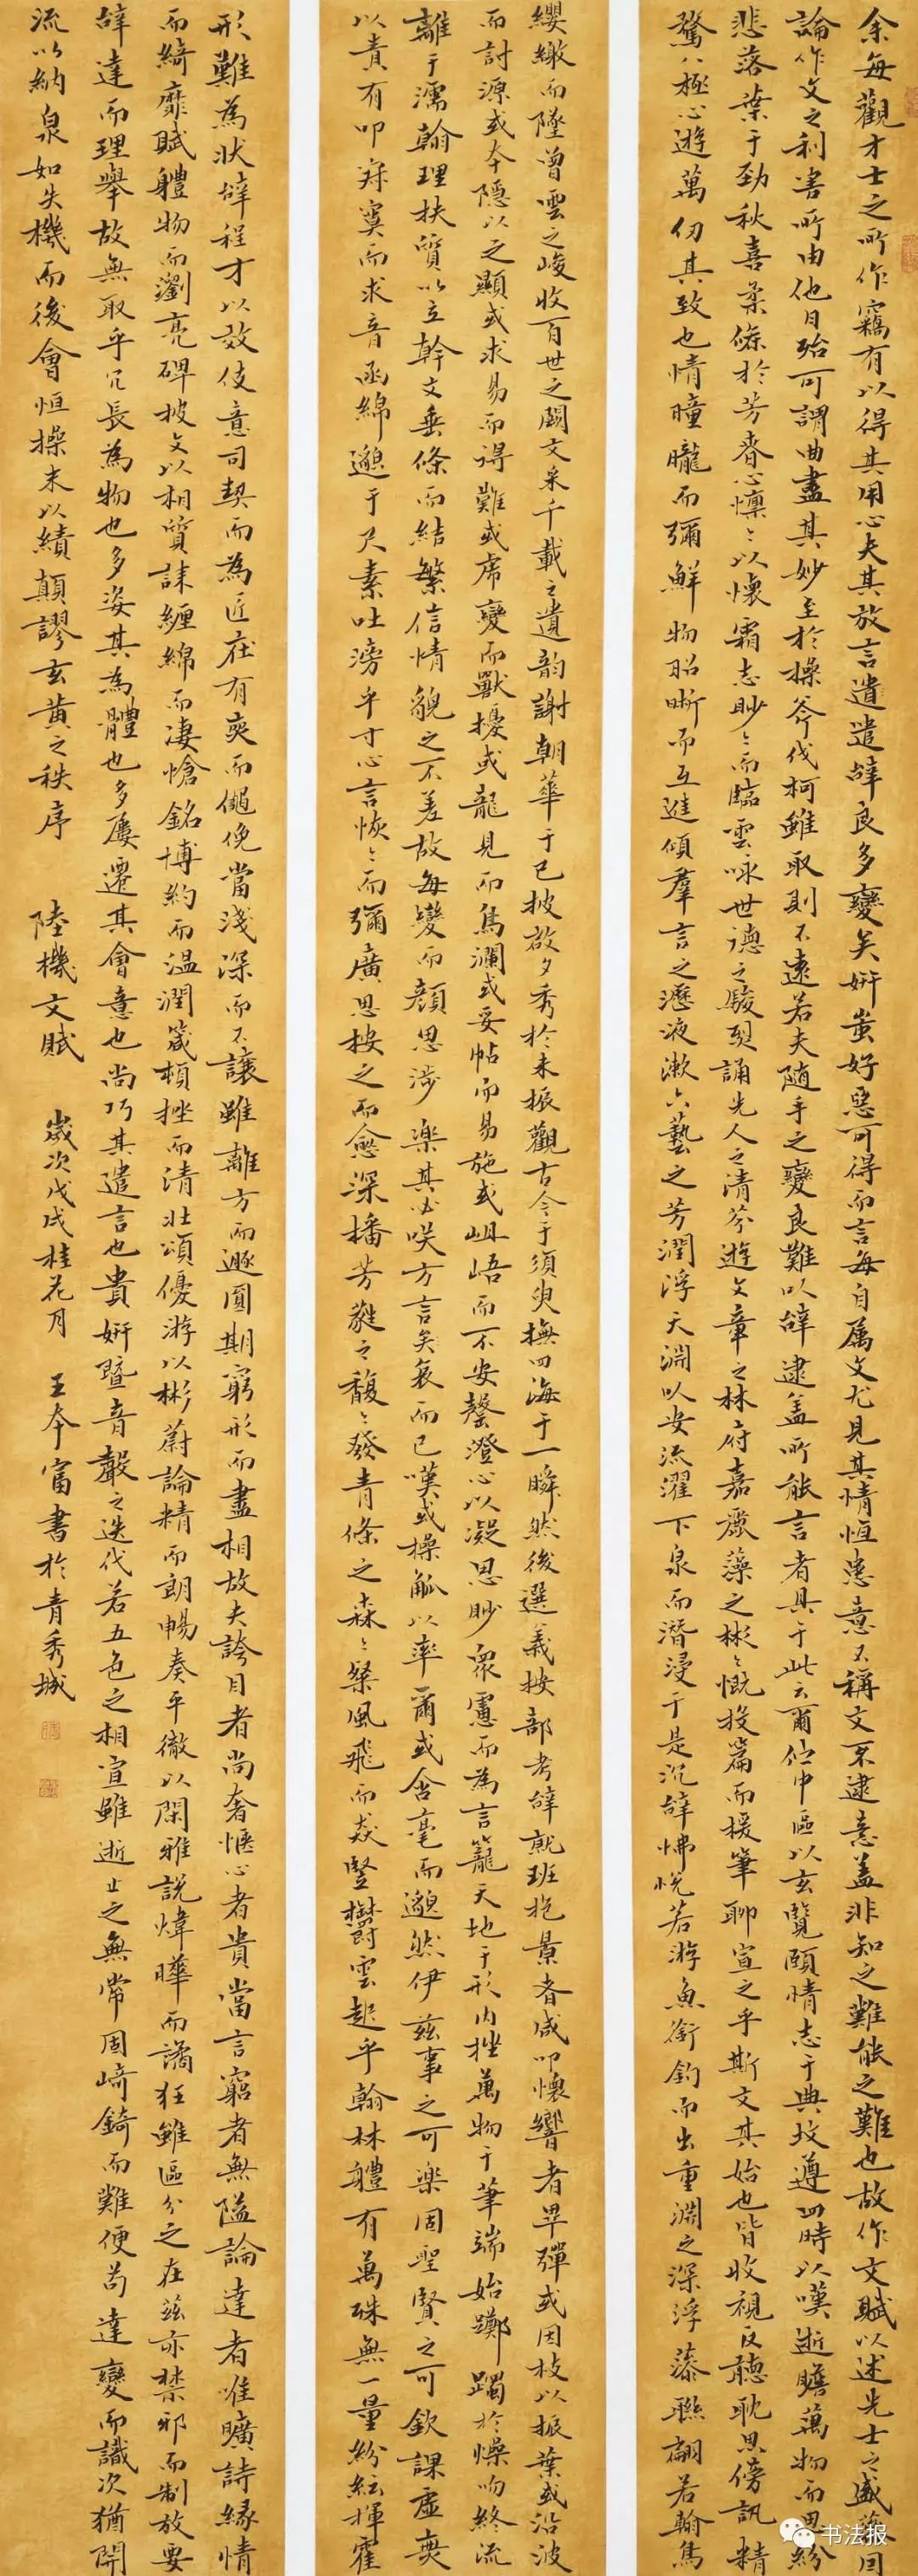 余每觀才士之所作竊有以得其用心夫其放言遣辭良多變矣妍蚩好惡可得而言每自属文尤見其情恆患意不稱文不逮意蓋非知之難能之難也故作文賦以述先士之盛藻因
論作文之利害所由他日殆可謂曲盡其妙至於操斧伐柯雖取則不遠若夫随手之變良難以辭逮盖所能言者具于此云爾佇中區以玄覽頤情志于典坟遵四時以嘆逝瞻萬物而思紛
悲落葉于勁秋喜柔條於芳春心懍〻以懷霜志眇〻而臨雲咏世德之駿烈誦先人之清芬遊文章之林府嘉麗藻之彬〻慨投篇而援筆聊宣之乎斯文其始也皆收視反聽耽思傍訊精
騖八極心遊萬仞其致也情曈曨而彌鮮物昭晰而互進傾羣言之瀝液漱六藝之芳潤浮天淵以安流濯下泉而潛浸于是沉辭怫悅若游魚銜鈎而出重淵之深浮藻聯翩若翰鳥
纓繳而墜曾雲之峻收百世之闕文采千載之遺韵謝朝華于已披啟夕秀於未振觀古今于須臾撫四海于一瞬然後選義按部考辭就班抱景者咸叩懷響者畢彈或因枝以振葉或沿波
而討源或本隱以之顯或求易而得難或虎變而獸擾或龍見而鳥瀾或妥帖而易施或岨峿而不安罄澄心以凝思眇眾慮而為言籠天地于形內挫萬物于筆端始躑躅於燥吻終流
離于濡翰理扶質以立幹文垂條而結繁信情貌之不差故每變而顏思涉樂其必咲方言矣哀而已嘆或操觚以率爾或含毫而邈然伊茲事之可樂固聖賢之可欽課虛
以責有叩寂寞而求音函綿邈于尺素吐滂乎寸心言恢〻而彌廣思按之而愈深播芳蕤之馥〻發青條之森〻粲風飛而猋豎欝雲起乎翰林體有萬殊無一量紛紜揮霍
形難為狀辭程才以效伎意司契而為匠在有無而僶俛當淺深而不讓雖離方而遯圓期窮形而盡相故夫誇目者尚奢愜心者貴當言窮者無隘論達者唯曠詩緣情
而綺靡賦體物而瀏亮碑披文以相質誄纏綿而淒愴銘博約而温潤箴頓挫而清壯頌優游以彬蔚論精而朗暢奏平徹以閑雅說煒曄而譎狂雖區分之在茲亦禁邪而制放要
辭達而理舉故無取乎冗長為物也多姿其為體也多屢遷其會意也尚巧其遣言也貴妍暨音聲之迭代若五色之相宣雖逝止之無常固崎錡而難便苟達變而識次猶開
流以納泉如失機而後會恒操末以續顛謬玄黄之秩序 陸機文賦 歲次戊戌桂花月 王本富書於青秀城
书法报